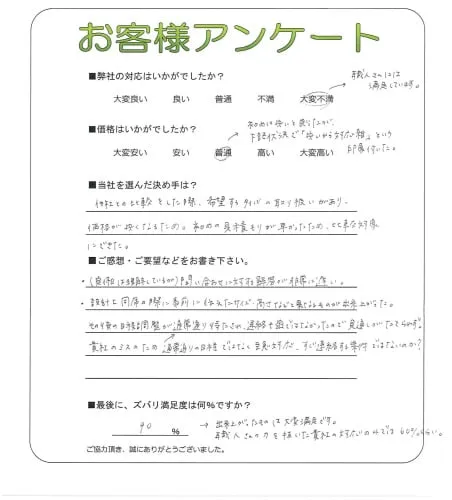 お客様アンケート
■弊社の対応はいかがでしたか？
大変良い 良い 普通 不満 大変不満
→ 職人さんには
満足しています。
■価格はいかがでしたか？
初めは安いと感じたが、
「安いから対応が雑」という
印象が付いた。
大変安い 安い 普通 高い 大変高い
■当社を選んだ決め手は？
他社との比較をした際、希望するタイプの取り扱いがあり、
価格が安くなるため。初めの見積もりが早かったため、比較対象
にできた。
■ご感想・ご要望などをお書き下さい。
問い合わせに対する回答が非常に遅い。
・設計士同席の際に事前に伝えたサイズ・高さなどと異なるものが出来上がった。
その後の日程調整が通常通り待たされ、連絡も密ではなかったので見通しがたてられず。
貴社のミスのため通常通りの日程ではなく至急対応、すぐ連絡する案件ではないのか？
■最後に、ズバリ満足度は何％ですか？
90 ％
→ 出来上がったものは大変満足です。
職人さんの力を抜いた貴社の対応のみでは60％くらい。
ご協力頂き、誠にありがとうございました。